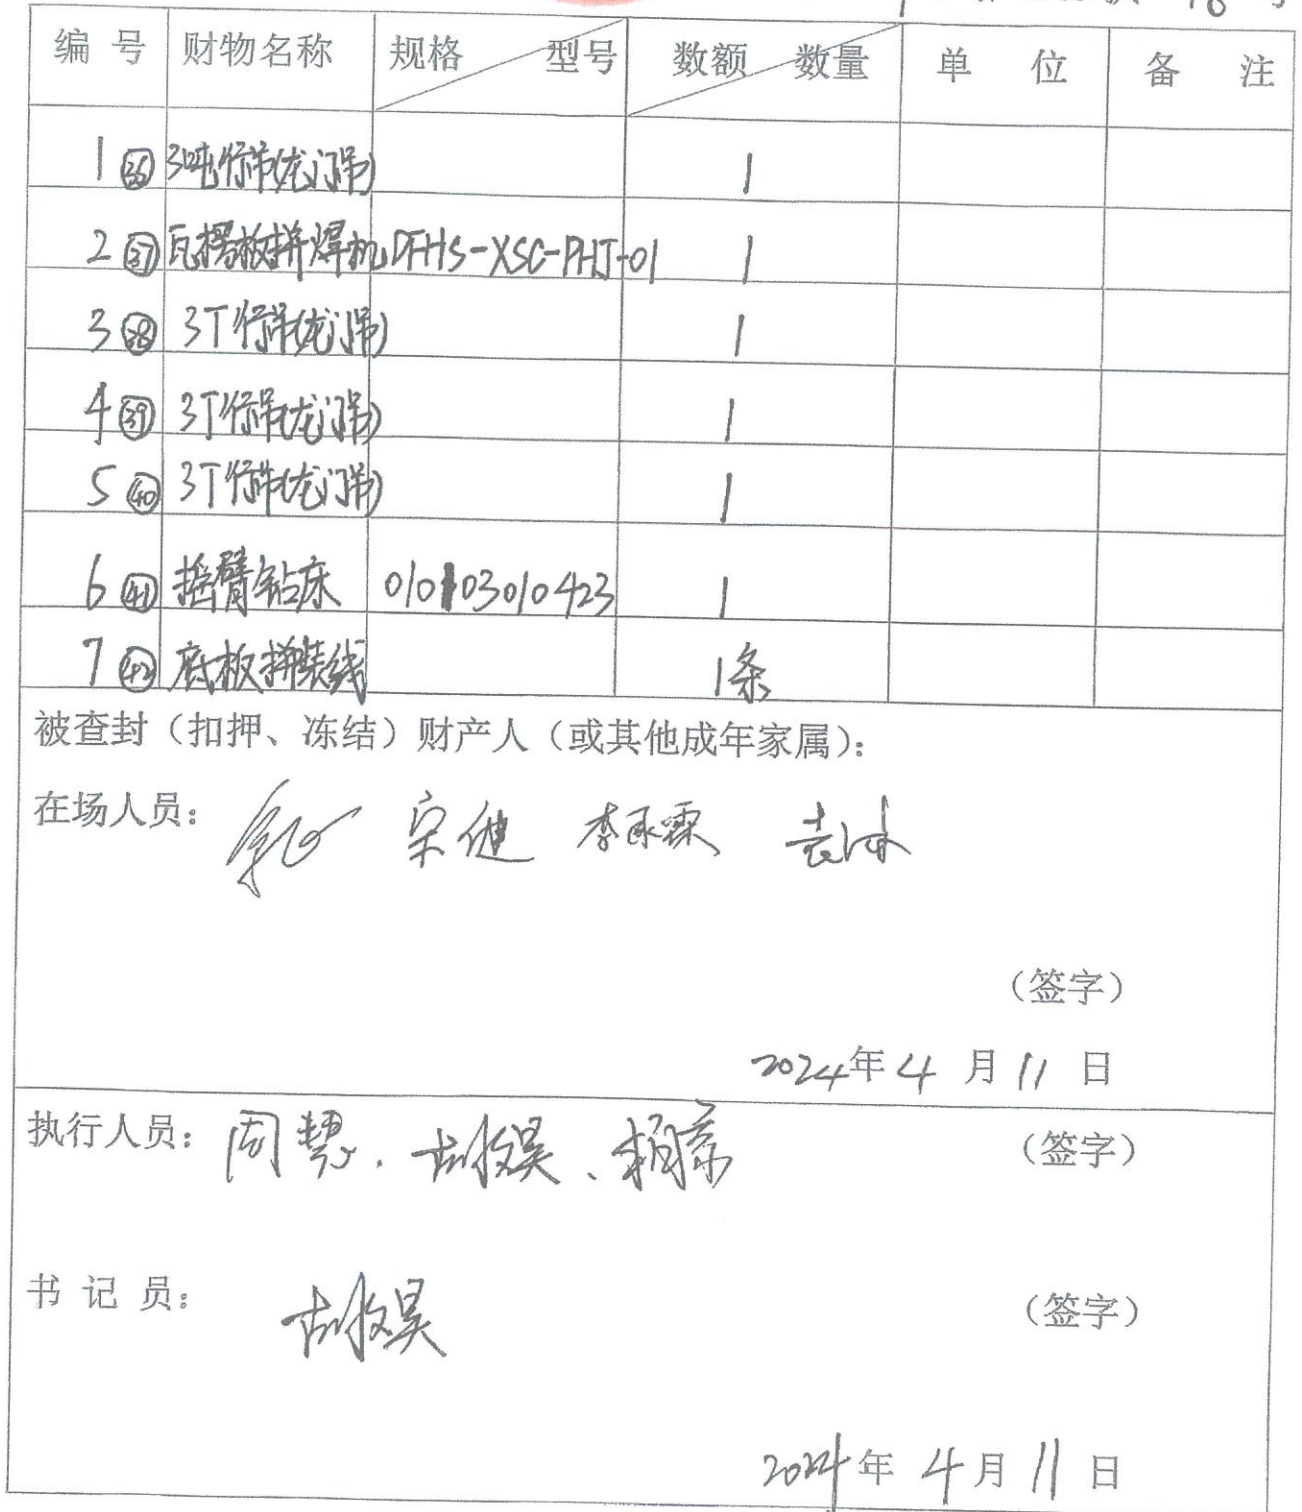 编 号 财物名称 规格 型号 数额 数量 单 位 备 注
1 ㊱ 3吨行吊(龙门吊) 1
2 ㊲ 瓦楞板拼焊机 DFHS-XSC-PHJ-01 1
3 ㊳ 3T行吊(龙门吊) 1
4 ㊴ 3T行吊(龙门吊) 1
5 ㊵ 3T行吊(龙门吊) 1
6 ㊶ 摇臂钻床 010103010423 1
7 ㊷ 底板拼装线 1条
被查封（扣押、冻结）财产人（或其他成年家属）：
在场人员： 宋健
（签字）
2024年4月11日
执行人员： 周慧、
（签字）
书 记 员：
（签字）
2024年4月11日